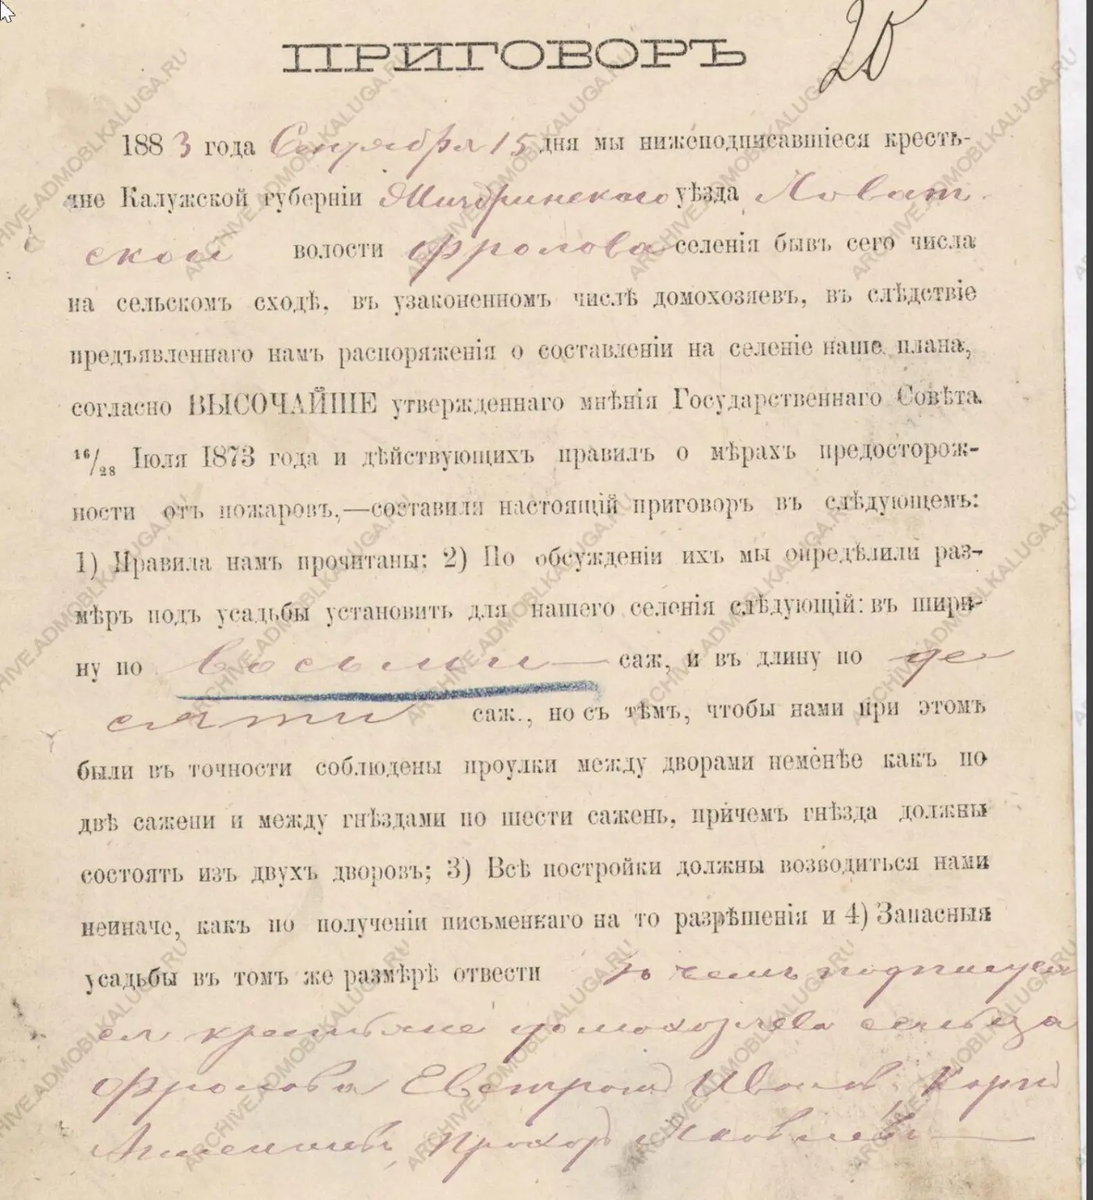 ПРИГОВОРЪ
20
1883 года Сентября 15 дня мы нижеподписавшіеся кресть-
яне Калужской губерніи уѣзда Ловат
ской волости Фролова селенія бывъ сего числа
на сельскомъ сходѣ, въ узаконенномъ числѣ домохозяевъ, въ слѣдствіе
предъявленнаго намъ распоряженія о составленіи на селеніе наше плана,
согласно ВЫСОЧАЙШЕ утвержденнаго мнѣнія Государственнаго Совѣта
16/28 Іюля 1873 года и дѣйствующихъ правилъ о мѣрахъ предосторож-
ности отъ пожаровъ,—составили настоящій приговоръ въ слѣдующемъ:
1) Правила намъ прочитаны: 2) По обсужденіи ихъ мы опредѣлили раз-
мѣръ подъ усадьбы установить для нашего селенія слѣдующій: въ шири-
ну по восьми саж, и въ длину по де
сяти саж., но съ тѣмъ, чтобы нами при этомъ
были въ точности соблюдены проулки между дворами неменѣе какъ по
двѣ сажени и между гнѣздами по шести сажень, причемъ гнѣзда должны
состоять изъ двухъ дворовъ; 3) Всѣ постройки должны возводиться нами
неиначе, какъ по полученіи письменнаго на то разрѣшенія и 4) Запасныя
усадьбы въ томъ же размѣрѣ отвести въ чемъ подписуем
ся крестьяне домохозяева сельца
Фролова Евстрат Иванов
Прохор Яковлевъ
ARCHIVE.ADMOBLKALUGA.RU